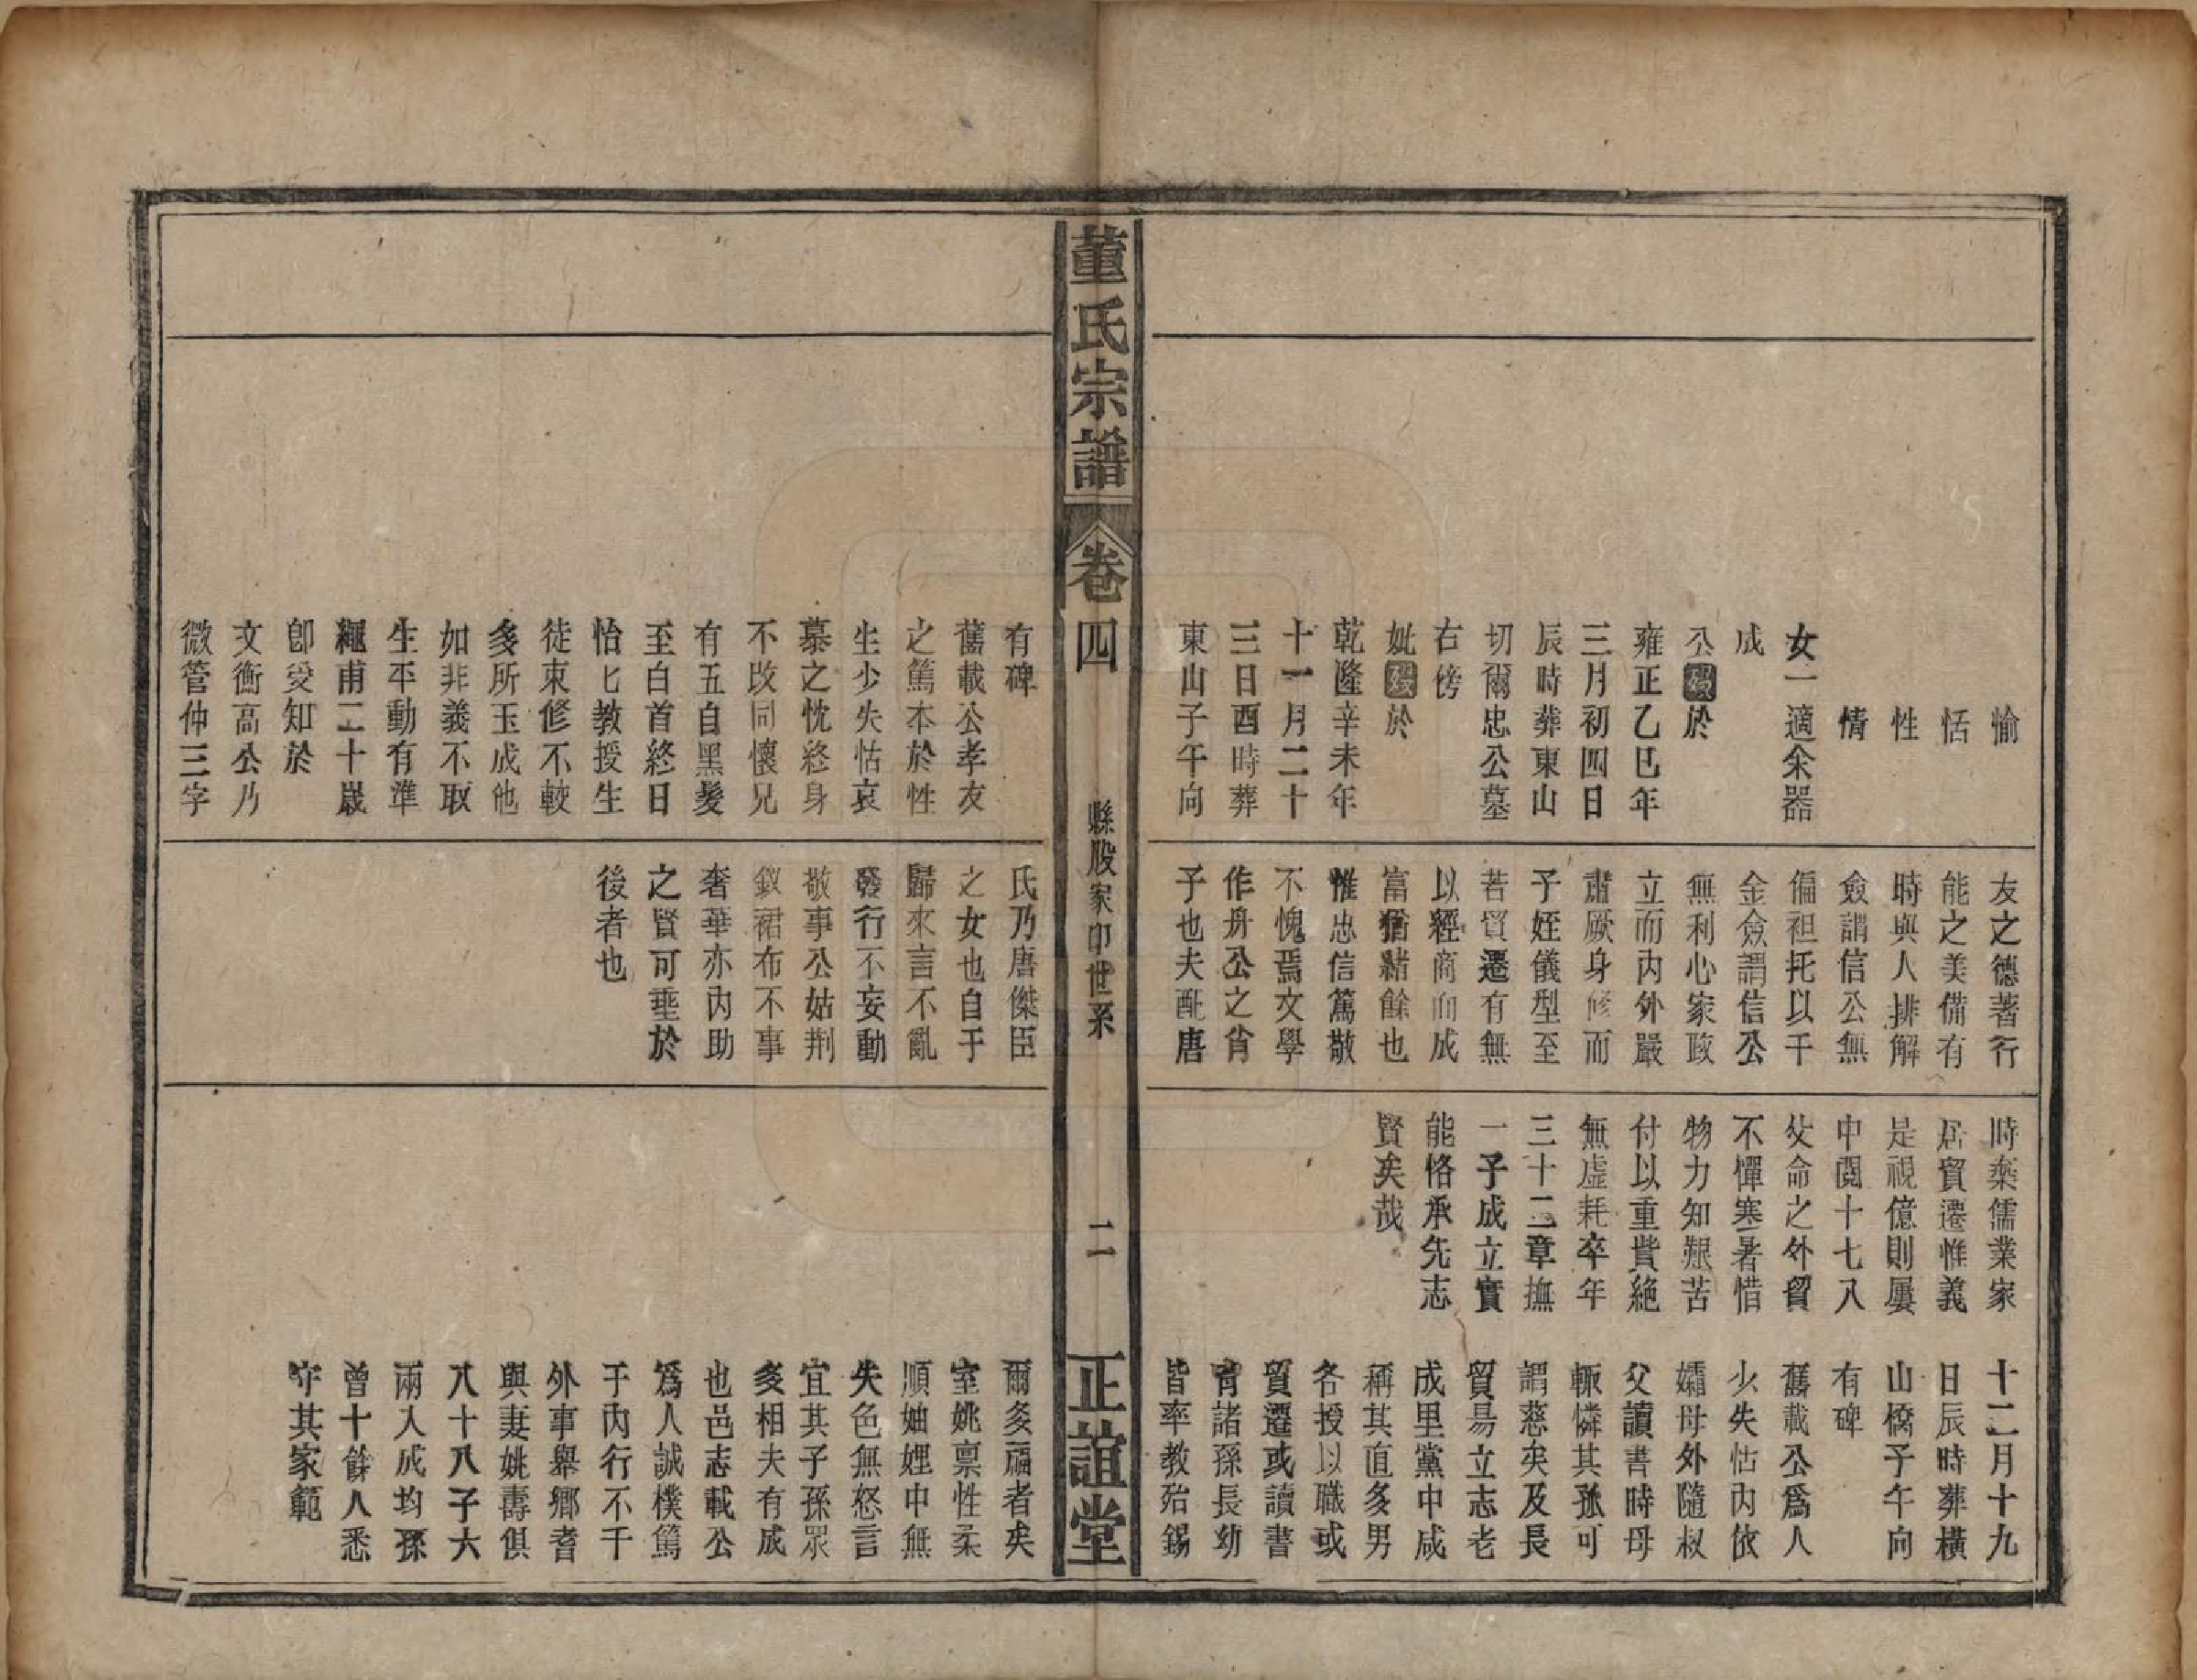 愉
恬
性
情
女一適余器
成
公歿於
雍正乙巳年
三月初四日
辰時葬東山
切爾忠公墓
右傍
妣歿於
乾隆辛未年
十一月二十
三日酉時葬
東山子午向
友之德著行
能之美備有
時與人排解
僉謂信公無
偏袒托以千
金僉謂信公
無利心家政
立而內外嚴
肅厥身修而
子姪儀型至
若貿遷有無
以經商而成
富猶緒餘也
惟忠信篤敬
不愧焉文學
作舟公之肖
子也夫配唐
時棄儒業家
居貿遷惟義
是視億則屢
中閱十七八
父命之外貿
不憚寒暑惜
物力知艱苦
付以重貲絕
無虛耗卒年
三十二章撫
一子成立實
能恪承先志
賢矣哉
十二月十九
日辰時葬橫
山橋子午向
有碑
舊載公爲人
少失怙內依
孀母外隨叔
父讀書時母
輒憐其孤可
謂慈矣及長
貿易立志老
成里黨中咸
稱其直多男
各授以職或
貿遷或讀書
育諸孫長幼
皆率教殆錫
董氏宗譜
卷四
縣股家印世系
二
正誼堂
有碑
舊載公孝友
之篤本於性
生少失怙哀
慕之忱終身
不改同懷兄
有五自黑髮
至白首終日
怡怡教授生
徒束修不較
多所玉成他
如非義不取
生平動有準
繩甫二十歲
卽受知於
文衡高公乃
微管仲三字
氏乃唐傑臣
之女也自于
歸來言不亂
發行不妄動
敬事公姑荆
釵裙布不事
奢華亦內助
之賢可垂於
後者也
爾多福者矣
室姚禀性柔
順妯娌中無
失色無怒言
宜其子孫眾
多相夫有成
也邑志載公
爲人誠樸篤
于內行不干
外事舉鄉耆
與妻姚壽俱
八十八子六
兩入成均孫
曾十餘人悉
守其家範